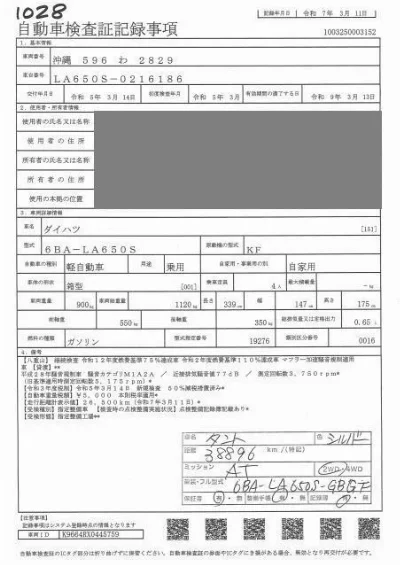 1028
記録年月日 令和 7年 3月11日
自動車検査証記録事項
1003250003152
1. 基本情報
車両番号 沖縄 596 わ 2829
車台番号 LA650S-0216186
交付年月日 令和 5年 3月14日 初度検査年月 令和 5年 3月 有効期間の満了する日 令和 9年 3月13日
2. 使用者・所有者情報
使用者の氏名又は名称
使用者の住所
所有者の氏名又は名称
所有者の住所
使用の本拠の位置
3. 車両詳細情報
車名 ダイハツ [151]
型式 6BA-LA650S 原動機の型式 KF
自動車の種別 軽自動車 用途 乗用 自家用・事業用の別 自家用
車体の形状 箱型 [001] 乗車定員 4人 最大積載量 -kg
車両重量 900kg 車両総重量 1120kg 長さ 339cm 幅 147cm 高さ 175cm
前軸重 550kg 後軸重 350kg 総排気量又は定格出力 0.65L
燃料の種類 ガソリン 型式指定番号 19276 類別区分番号 0016
4. 備考
車名 タント 色 シルバー
距離 38896 km/(特記)
ミッション AT 2WD・4WD
車装・フル型式 6BA-LA650S-GBGF
保証書 有・無 整備手帳 有・無 記録簿 有・無
【注意事項】
記録事項はシステム登録時点の情報となります
車両ID K9664RX0445759